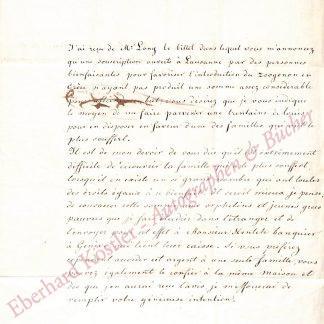 J'ai reçu de Mr Long le billet dans lequel vous m'annoncez
qu'une souscription ouverte à Lausanne par des personnes
bienfaisantes pour favoriser l'introduction du zoogenon en
n'ayant pas produit une somme assez considérable
pour vous desirez que je vous indique
le moyen de faire parvenir une trentaine de louis
pour en disposer en faveur d'une des familles
plus souffert.
Il est de mon devoir de vous dire qu'il est
difficile de découvrir la famille qui a le plus souffert
lorsqu'il en existe un si grand nombre qui ont toutes
des droits égaux à
de consacrer cette somme aux orphelins et jeunes grecs
pauvres que je fais élever dans l'étranger et de
l'envoyer pour cet effet à Monsieur banquier
à Genève qui tient leur caisse. Si vous préférez
accorder cet argent à une seule famille, vous
pouvez également le confier à la même maison et
dès que j'en aurai reçu l'avis je m'efforcerai de
remplir votre généreuse intention.
Eberhard Köstler Autographen & Bücher